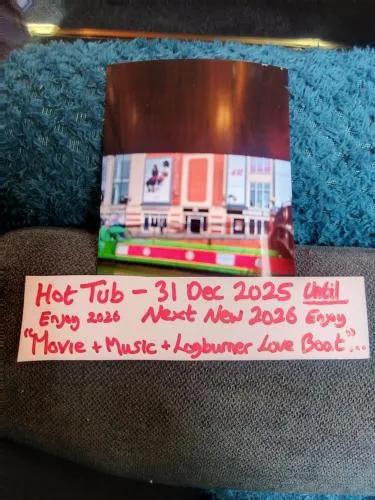 H&M
Hot Tub - 31 Dec 2025 Until
Enjoy 2026 Next New 2026 Enjoy
"Movie + Music + Logburner Love Boat"...